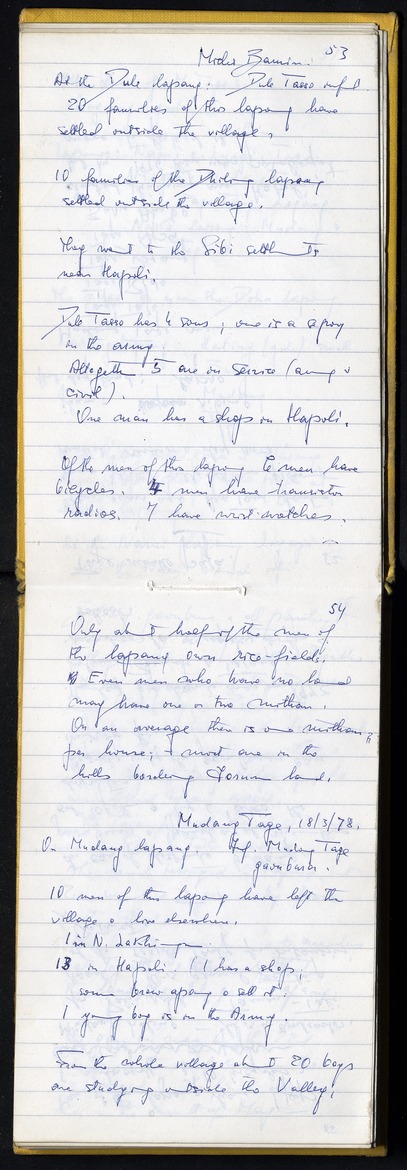 53
Michi Bamin.
At the Dule lapang: Dule Tasso inf.
20 families of this lapang have
settled outside the village.
10 families of the lapang
settled outside the village.
They went to the Sibi settlmts
near Hapoli.
Dule Tasso has 4 sons; one is a sepoy
in the army.
Altogeth 5 are in service (army &
civil).
One man has a shop in Hapoli.
Of the men of this lapang 6 men have
bicycles. 4 men have transistor
radios. 7 have wrist-watches.
54
Only abt half of the men of
the lapang own rice-fields.
Even men who have no land
may have one or two mithan.
On an average there is one mithan
per house; most are in the
hills bordering land.
Mudang Tage, 18/3/78.
On Mudang lapang. Inf. Mudang Tage
gaonbura.
10 men of this lapang have left the
village & live elsewhere.
1 in N. Lakhimpur
13 in Hapoli. (1 has a shop,
some brew apong & sell it.
1 young boy is in the Army.
From the whole village abt 20 boys
are studying outside the Valley.